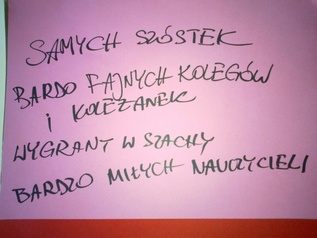 SAMYCH SZÓSTEK
BARDO FAJNYCH KOLEGÓW
I KOLEŻANEK
WYGRANT W SZACHY
BARDZO MIŁYCH NAUCZYCIELI